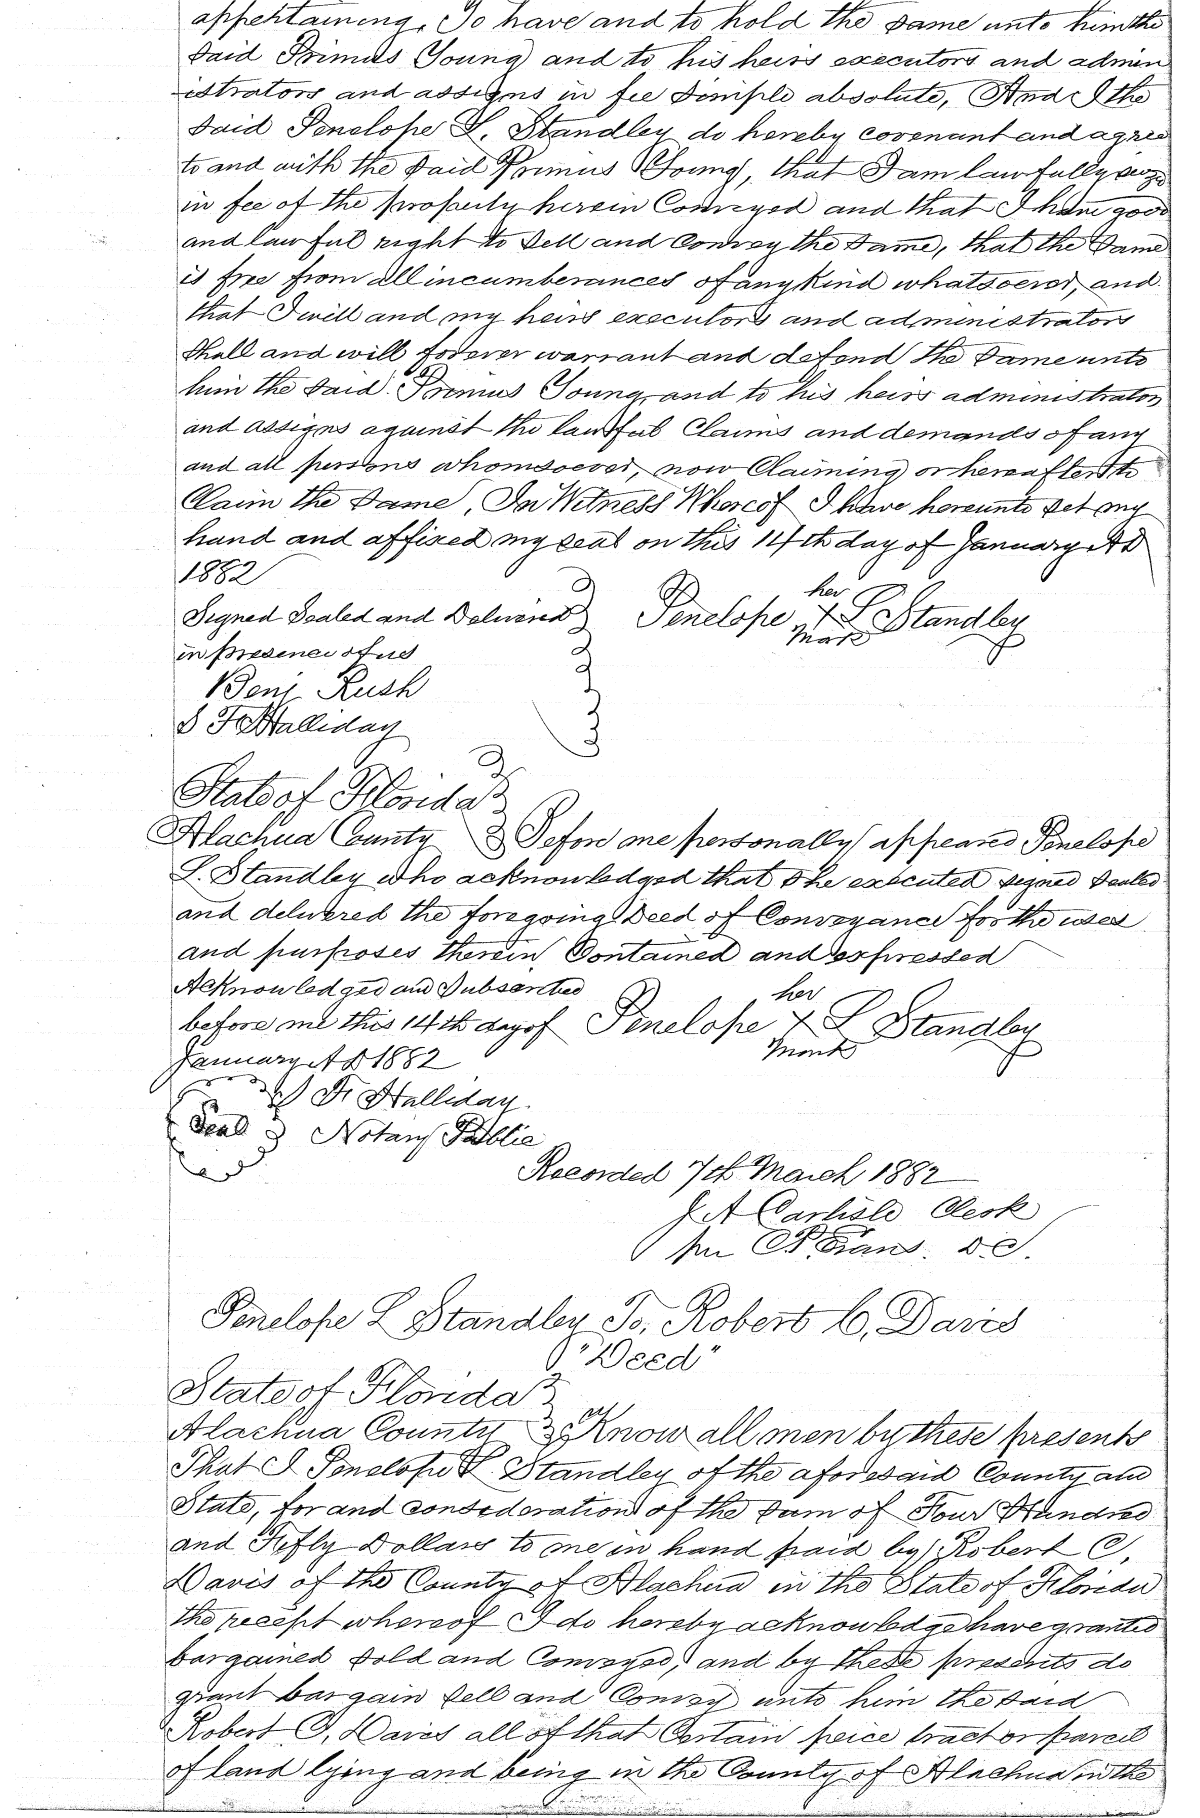 appertaining, To have and to hold the same unto him the
said Primus Young and to his heirs executors and admin
istrators and assigns in fee simple absolute, And I the
said Penelope L. Standley do hereby covenant and agree
to and with the said Primus Young, that I am lawfully
in fee of the property herein Conveyed and that I have good
and lawful right to sell and Convey the same, that the same
is free from all incumberances of any kind whatsoever, and
that I will and my heirs executors and administrators
shall and will forever warrant and defend the same unto
him the said Primus Young, and to his heirs administrators
and assigns against the lawful Claims and demands of any
and all persons whomsoever, now Claiming or hereafter to
Claim the same, In Witness Whereof I have hereunto set my
hand and affixed my seal on this 14th day of January A D
1882
her
Signed Sealed and Delivered Penelope X L Standley
mark
in presence of us
Benj Rush
S F Halliday
State of Florida
Alachua County Before me personally appeared Penelope
L. Standley who acknowledged that she executed signed sealed
and delivered the foregoing Deed of Conveyance for the uses
and purposes therein Contained and expressed
Acknowledged and Subscribed her
before me this 14th day of Penelope X L Standley
mark
January A D 1882
S F. Halliday.
Seal Notary Public
Recorded 7th March 1882
J A Carlisle Clerk
per Evans. D.C.
Penelope L Standley To, Robert C, Davis
"Deed"
State of Florida
Alachua County Know all men by these presents
That I Penelope L. Standley of the aforesaid County and
State, for and consideration of the sum of Four Hundred
and Fifty Dollars to me in hand paid by Robert C,
Davis of the County of Alachua in the State of Florida
the receipt whereof I do hereby acknowledge have granted
bargained sold and Conveyed, and by these presents do
grant bargain sell and Convey unto him the said
Robert C, Davis all of that Certain peice tract or parcel
of land lying and being in the County of Alachua in the